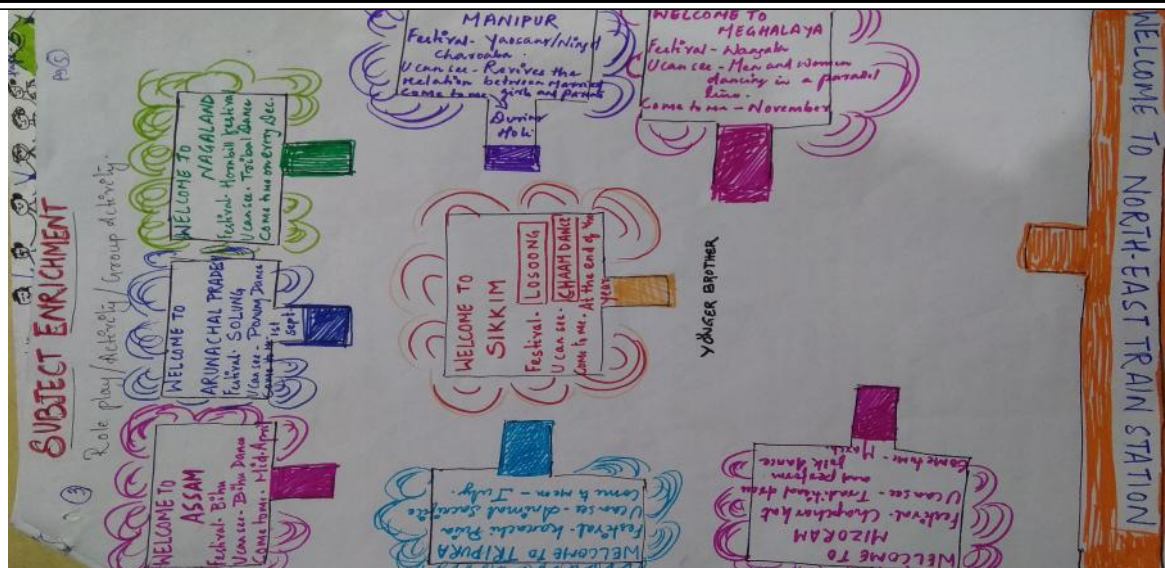 SUBJECT ENRICHMENT
Role play/Activity/Group activity.
③
WELCOME TO
NAGALAND
Festival- Hornbill Festival
U can see- Tribal Dance
Come to me on every Dec.
WELCOME TO
ARUNACHAL PRADESH
Festival- SOLUNG
U can see- Ponung Dance
Come to me 1st
sept
WELCOME TO
ASSAM
Festival- Bihu
U can see- Bihu Dance
Come to me- Mid-April
MANIPUR
Festival- Yaosang/Ningol
Charoaba.
U can see- Revives the
relation between married
girls and parents
Come to me
During
Holi
WELCOME TO
MEGHALAYA
Festival- Wangala
U can see- Men and women
dancing in a parallel
line.
Come to me - November
WELCOME TO
SIKKIM
Festival- LOSOONG
U can see- CHAAM DANCE
Come to me- At the end of the
year
YOUNGER BROTHER
WELCOME TO TRIPURA
Festival- Karachi Puja
U can see- Animal Sacrifice
Come to me - July.
WELCOME TO
MIZORAM
Festival- Chapcharkut
U can see- Traditional dress
and perform
folk dance
Come to me - March.
WELCOME TO NORTH-EAST TRAIN STATION